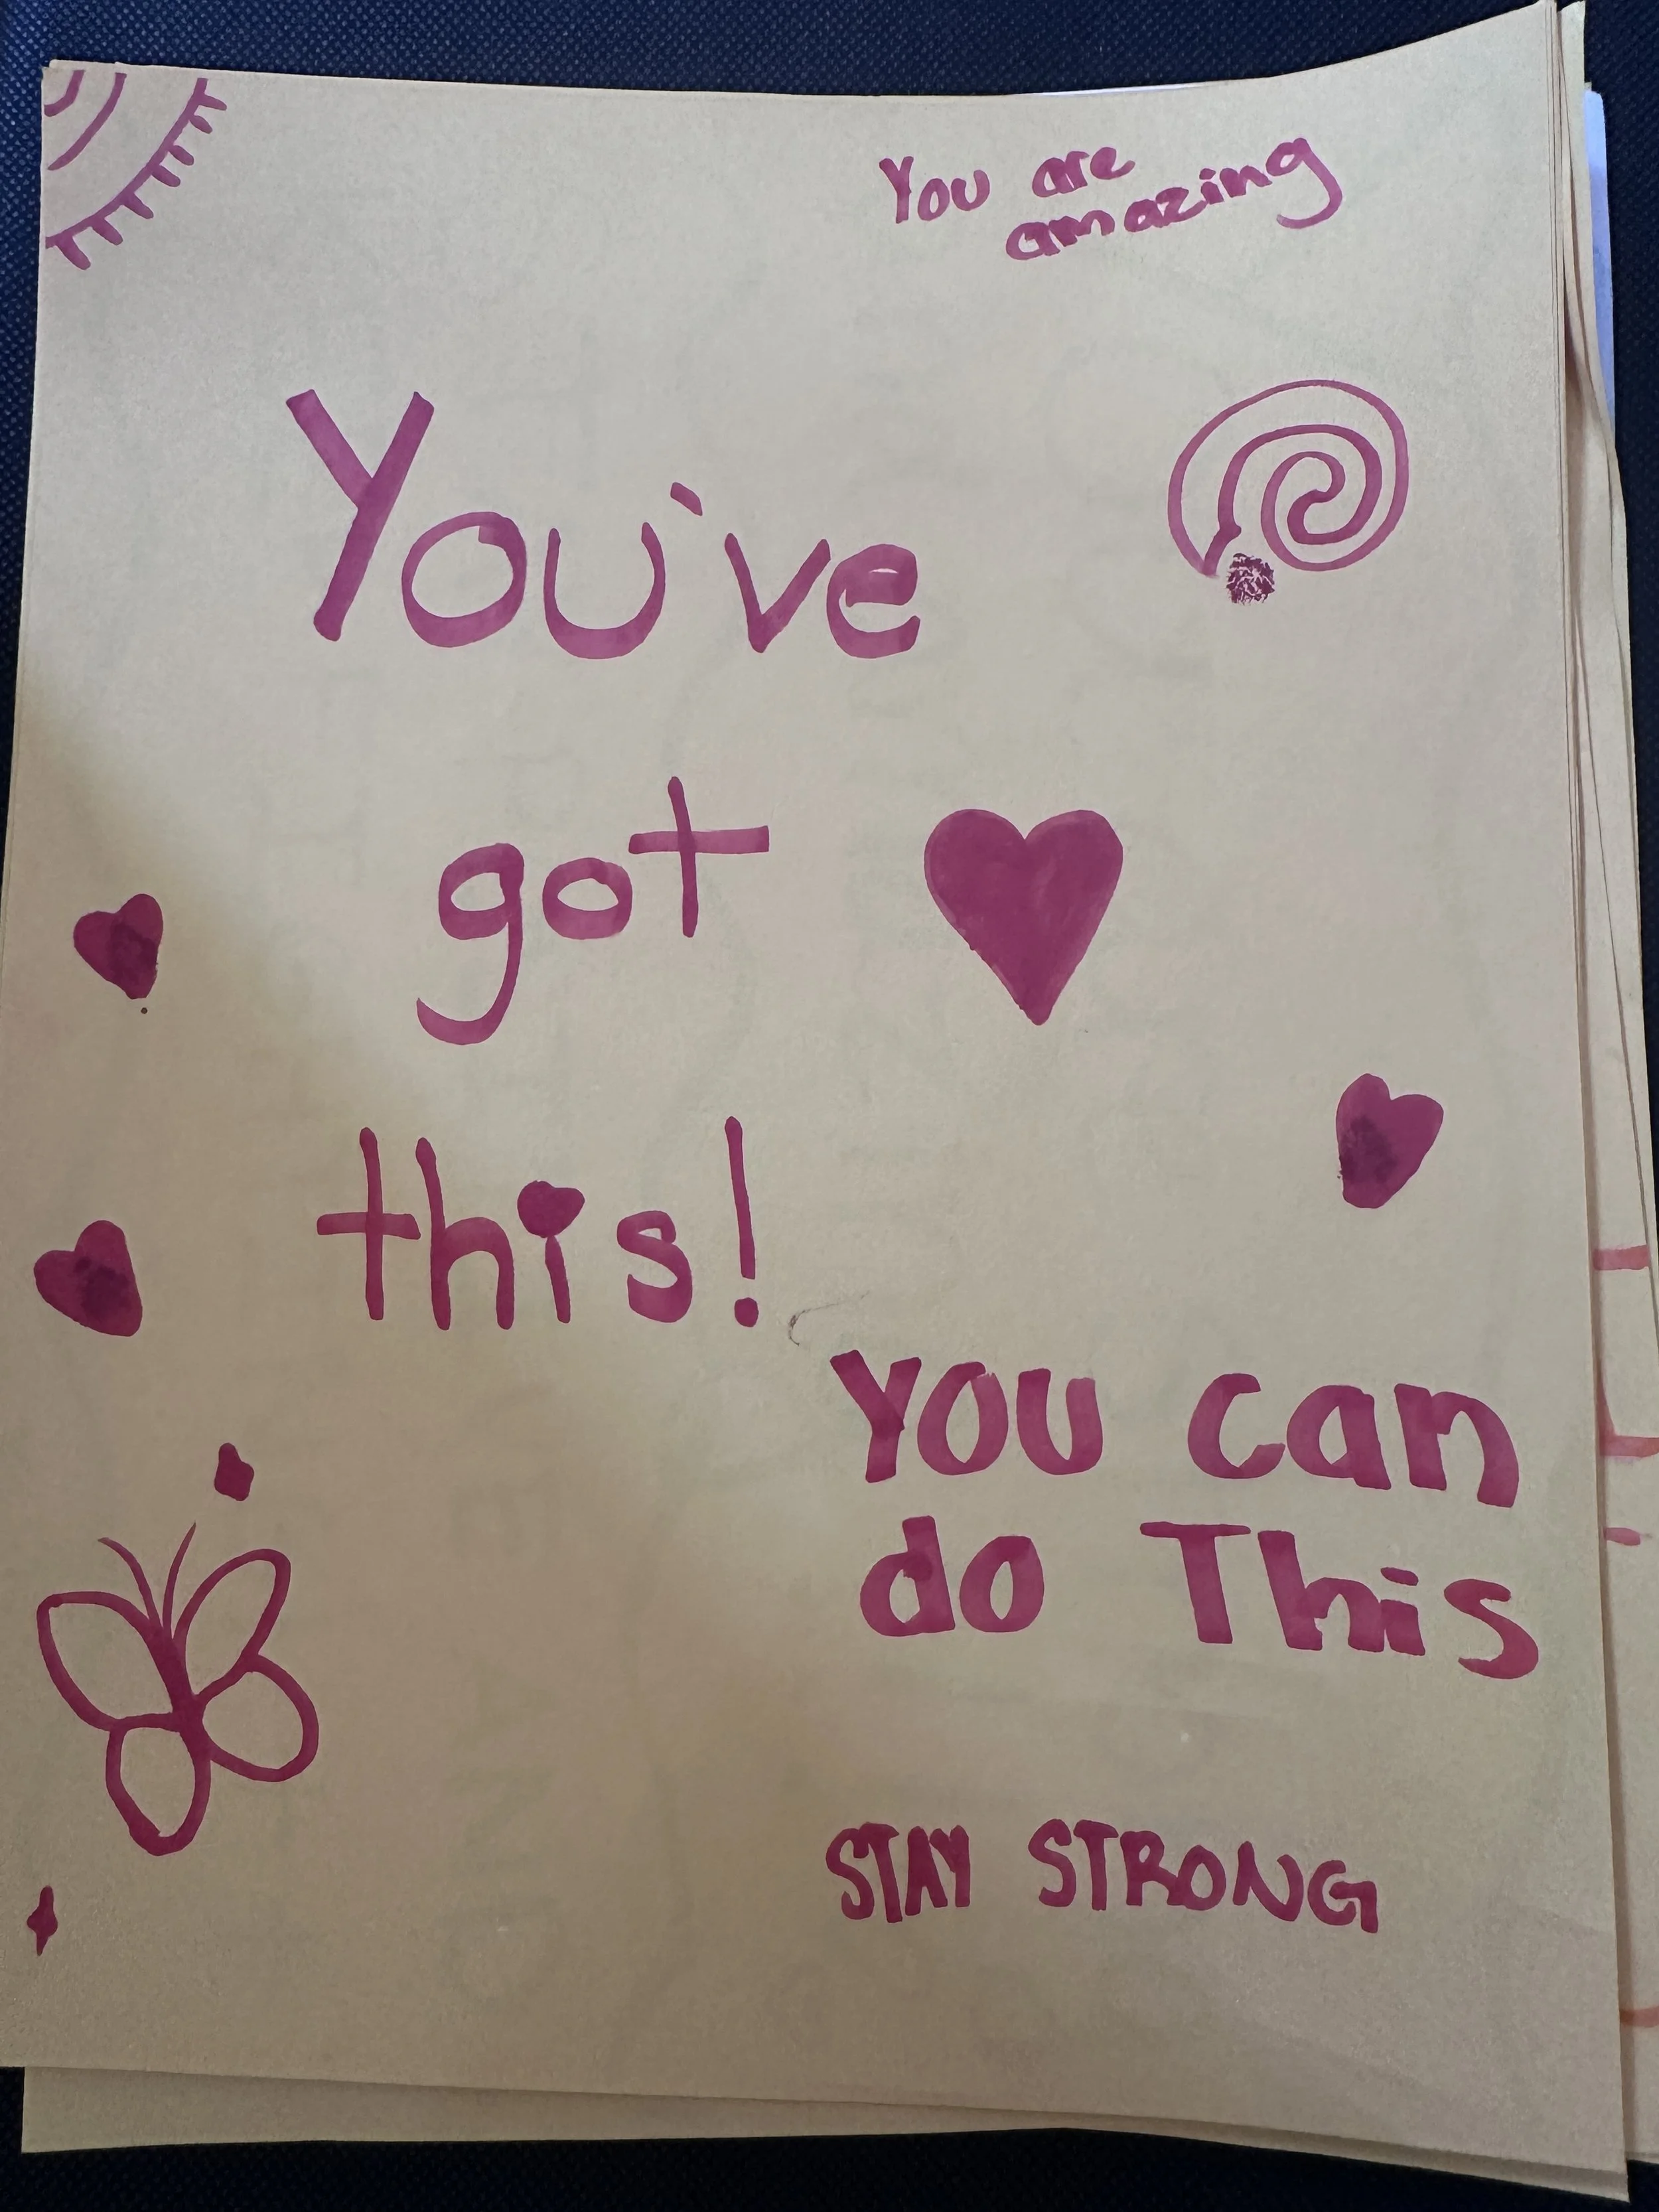 You are
amazing
You've
got
this!
You can
do This
STAY STRONG